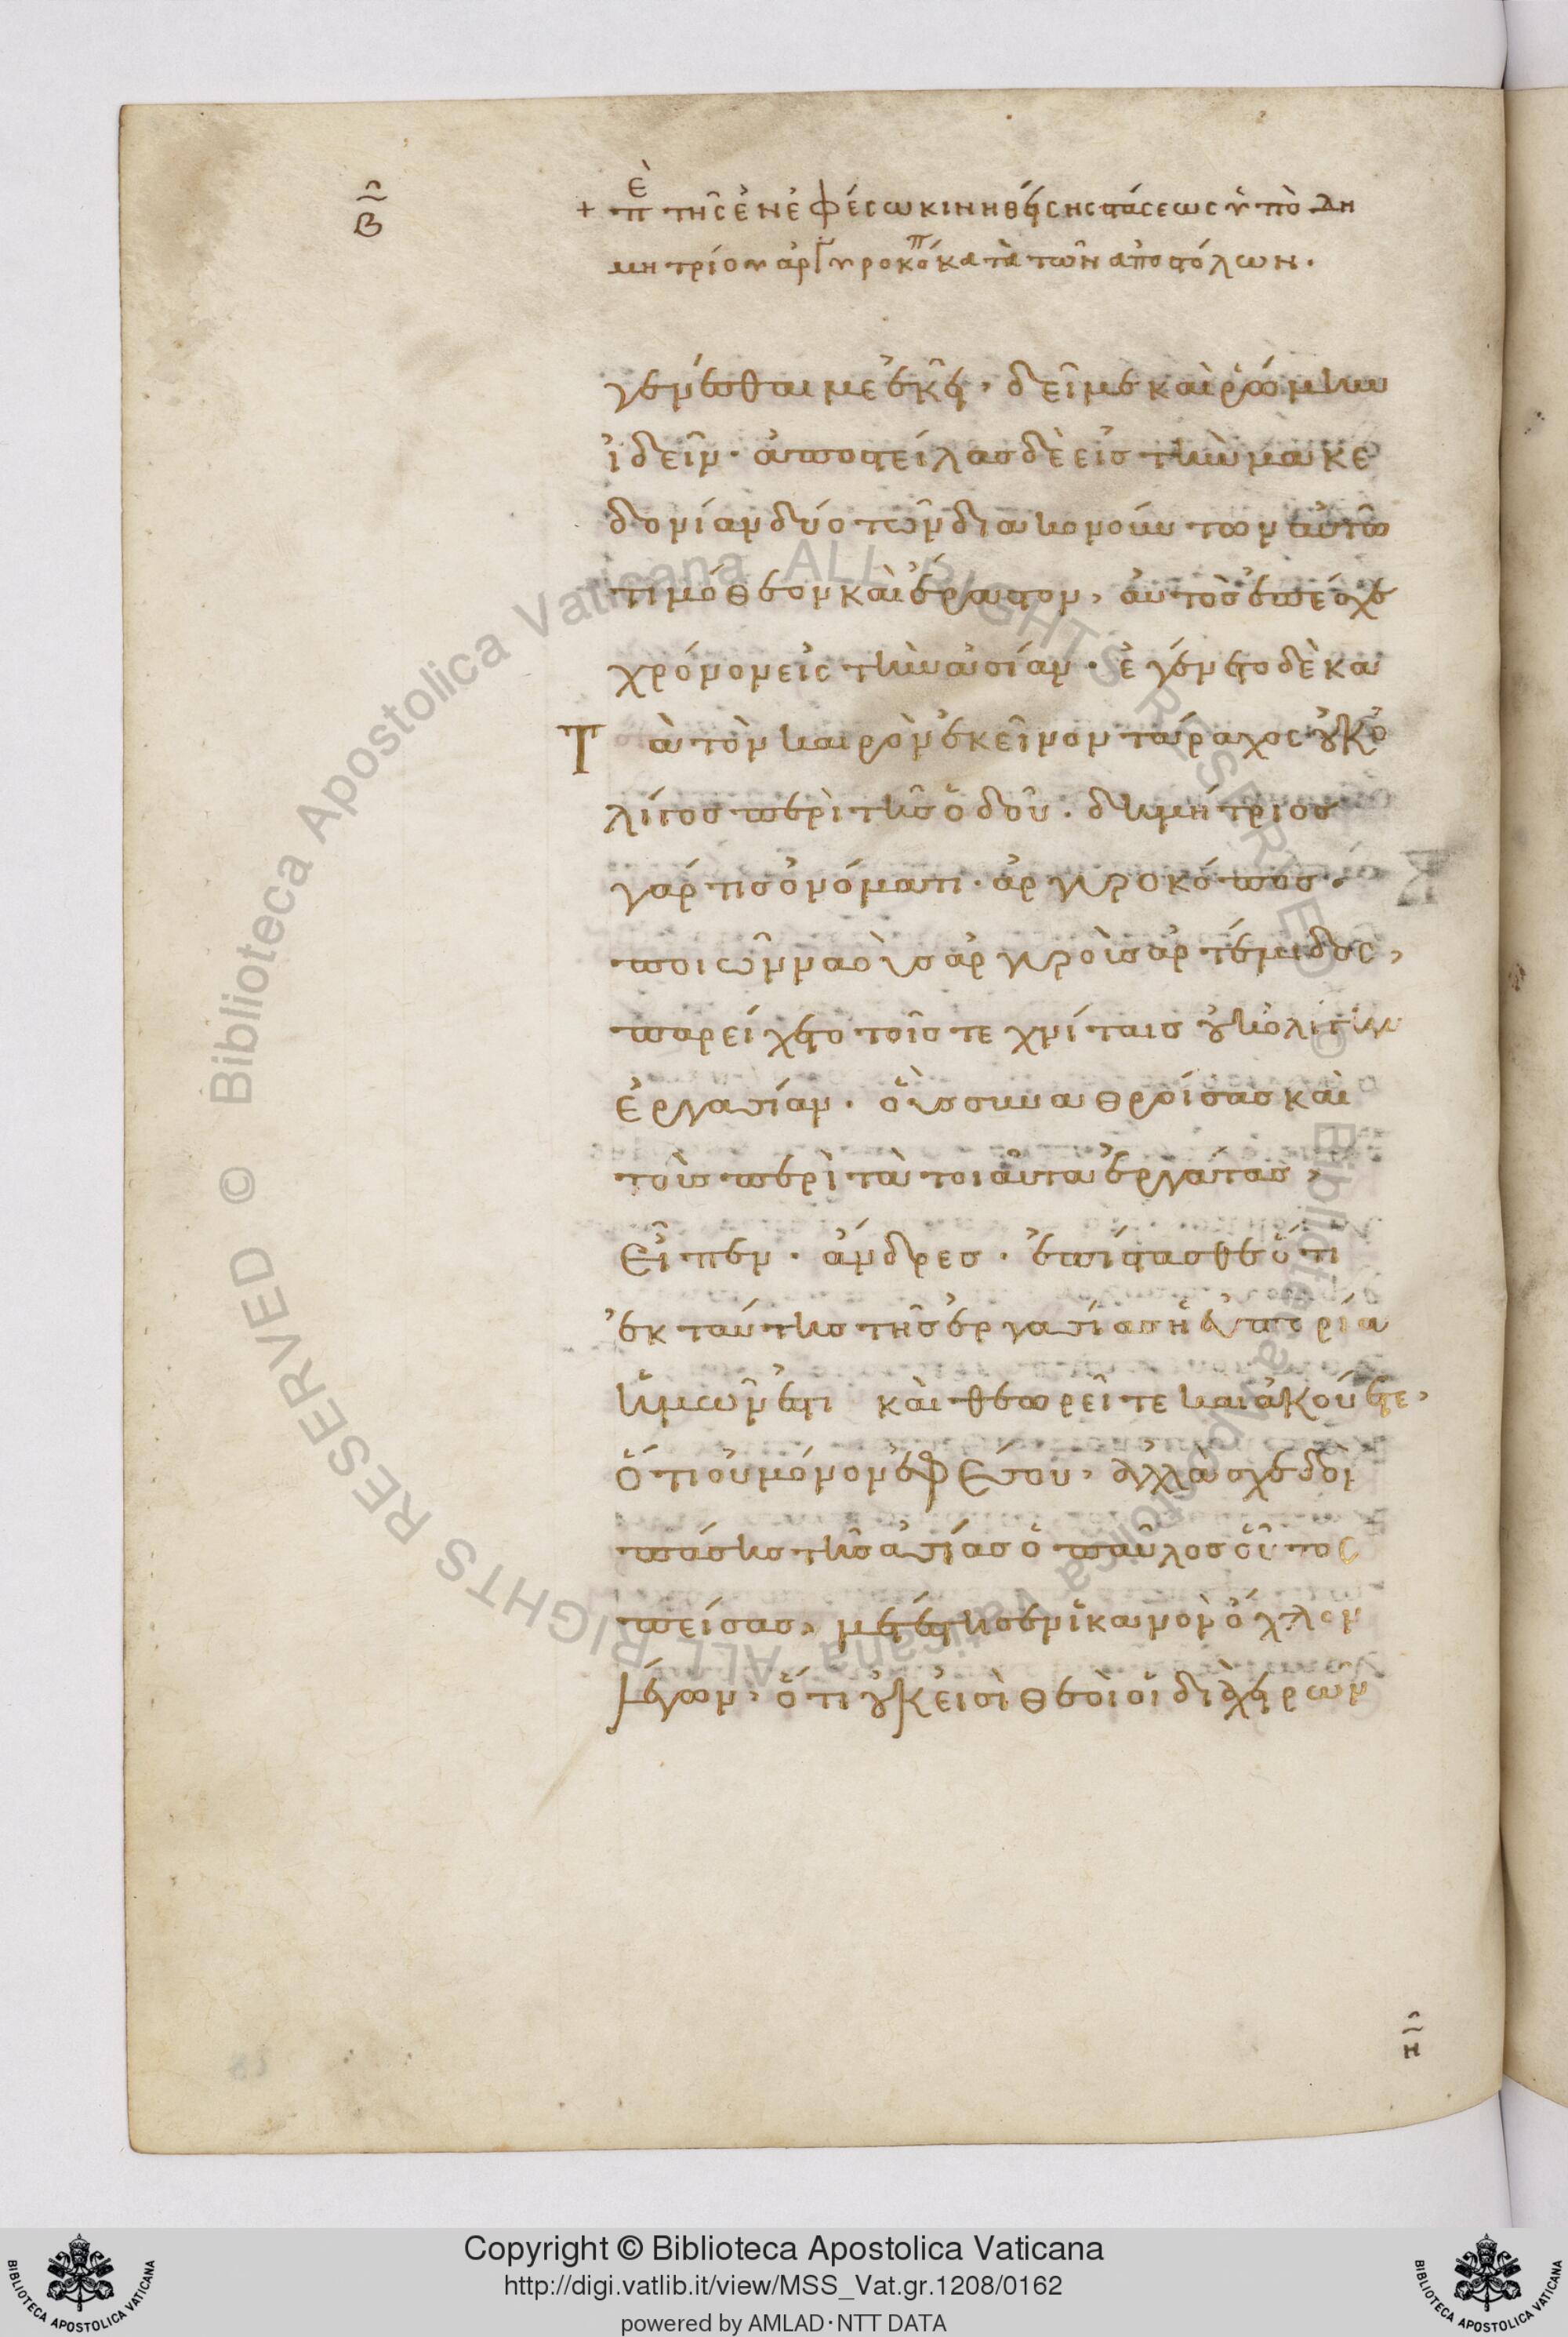 β
+ ἐπ τῆς ἐν ἐφέσω κινηθείσης στάσεως ὑπὸ δη
μητρίου ἀργυροκόπ κατὰ τῶν ἀποστόλων.
γενέσθαι με ἐκεῖ, δεῖ με καὶ ῥώμην
ἰδεῖν. ἀποστείλας δὲ εἰς τὴν μακε
δονίαν δύο τῶν διακονούντων αὐτῶ
τιμόθεον καὶ ἔραστον, αὐτὸς ἐπέσχε
χρόνον εἰς τὴν ἀσίαν. ἐγένετο δὲ κα
Τὰ τὸν καιρὸν ἐκεῖνον τάραχος οὐκ ὀ
λίγος περὶ τῆς ὁδοῦ. δημήτριος
γάρ τις ὀνόματι. ἀργυροκόπος.
ποιῶν ναοὺς ἀργυροῦς ἀρτέμιδος,
παρείχετο τοῖς τεχνίταις οὐκ ὀλίγην
ἐργασίαν. οὓς συναθροίσας καὶ
τοὺς περὶ τὰ τοιαῦτα ἐργάτας,
Εἶπεν. ἄνδρες. ἐπίστασθε ὅτι
ἐκ ταύτης τῆς ἐργασίας ἡ εὐπορία
ἡμῶν ἐστι καὶ θεωρεῖτε καὶ ἀκούετε,
ὅτι οὐ μόνον ἐφέσου, ἀλλὰ σχεδὸν
πάσης τῆς ἀσίας ὁ παῦλος οὗτος
πείσας, μετέστησεν ἱκανὸν ὄχλον
λέγων, ὅτι οὐκ εἰσὶ θεοὶ οἱ διὰ χειρῶν
η
Copyright © Biblioteca Apostolica Vaticana
http://digi.vatlib.it/view/MSS_Vat.gr.1208/0162
powered by AMLAD·NTT DATA
BIBLIOTECA APOSTOLICA VATICANA
BIBLIOTECA APOSTOLICA VATICANA
Biblioteca Apostolica Vaticana ALL RIGHTS RESERVED © Biblioteca Apostolica Vaticana ALL RIGHTS RESERVED ©